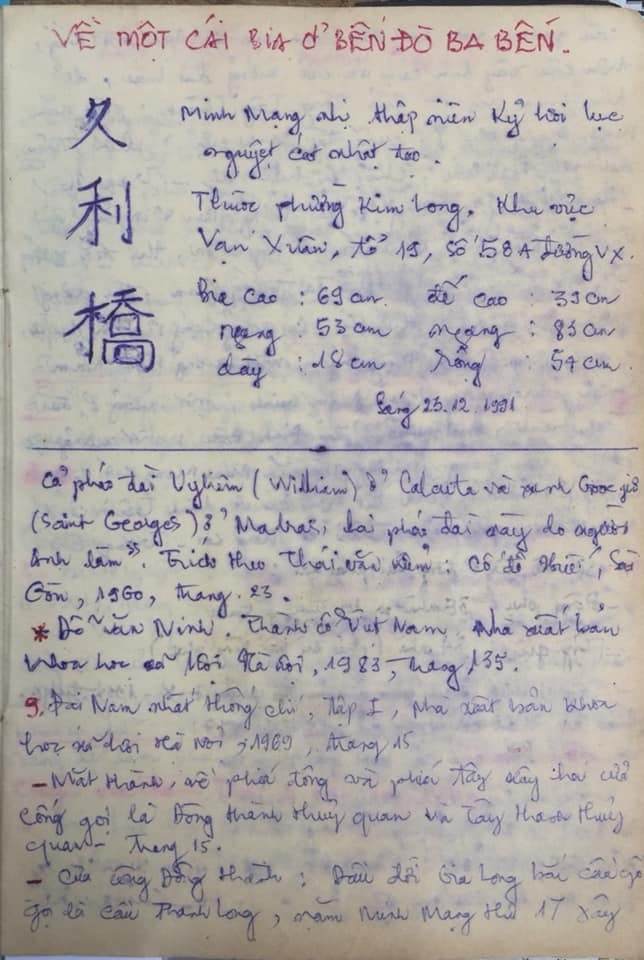 VỀ MỘT CÁI BIA Ở BẾN ĐÒ BA BẾN.
久利橋
Minh Mạng nhị thập niên Kỷ hợi lục
nguyệt cát nhật tạo.
Thuộc phường Kim Long. Khu vực
Vạn Xuân, tổ 19, số 58A đường VX.
Bia cao : 69 cm đế cao : 39 cm
ngang : 53 cm ngang : 83 cm
dày : 18 cm rộng : 54 cm.
Sáng 23.12.1991
(William) ở Calcuta và
(Saint Georges) ở Madras, hai pháo đài này do người
Anh làm". Trích theo Thái Văn Kiểm: Cố đô Huế, Sài
Gòn, 1960, trang. 23.
* Đỗ Văn Ninh. Thành cổ Việt Nam. Nhà xuất bản
Khoa học xã hội Hà Nội, 1983, trang 135.
9. Đại Nam nhất thống chí, Tập I, nhà xuất bản Khoa
học xã hội Hà Nội, 1969, trang 15
- Mặt thành, về phía đông và phía tây xây hai cửa
cống gọi là Đông thành thuỷ quan và Tây thành thuỷ
quan - trang 15.
- Cửa cống Đông thành : Đầu đời Gia Long bắc cầu gỗ
gọi là cầu Thanh Long, năm Minh Mạng thứ 17 xây